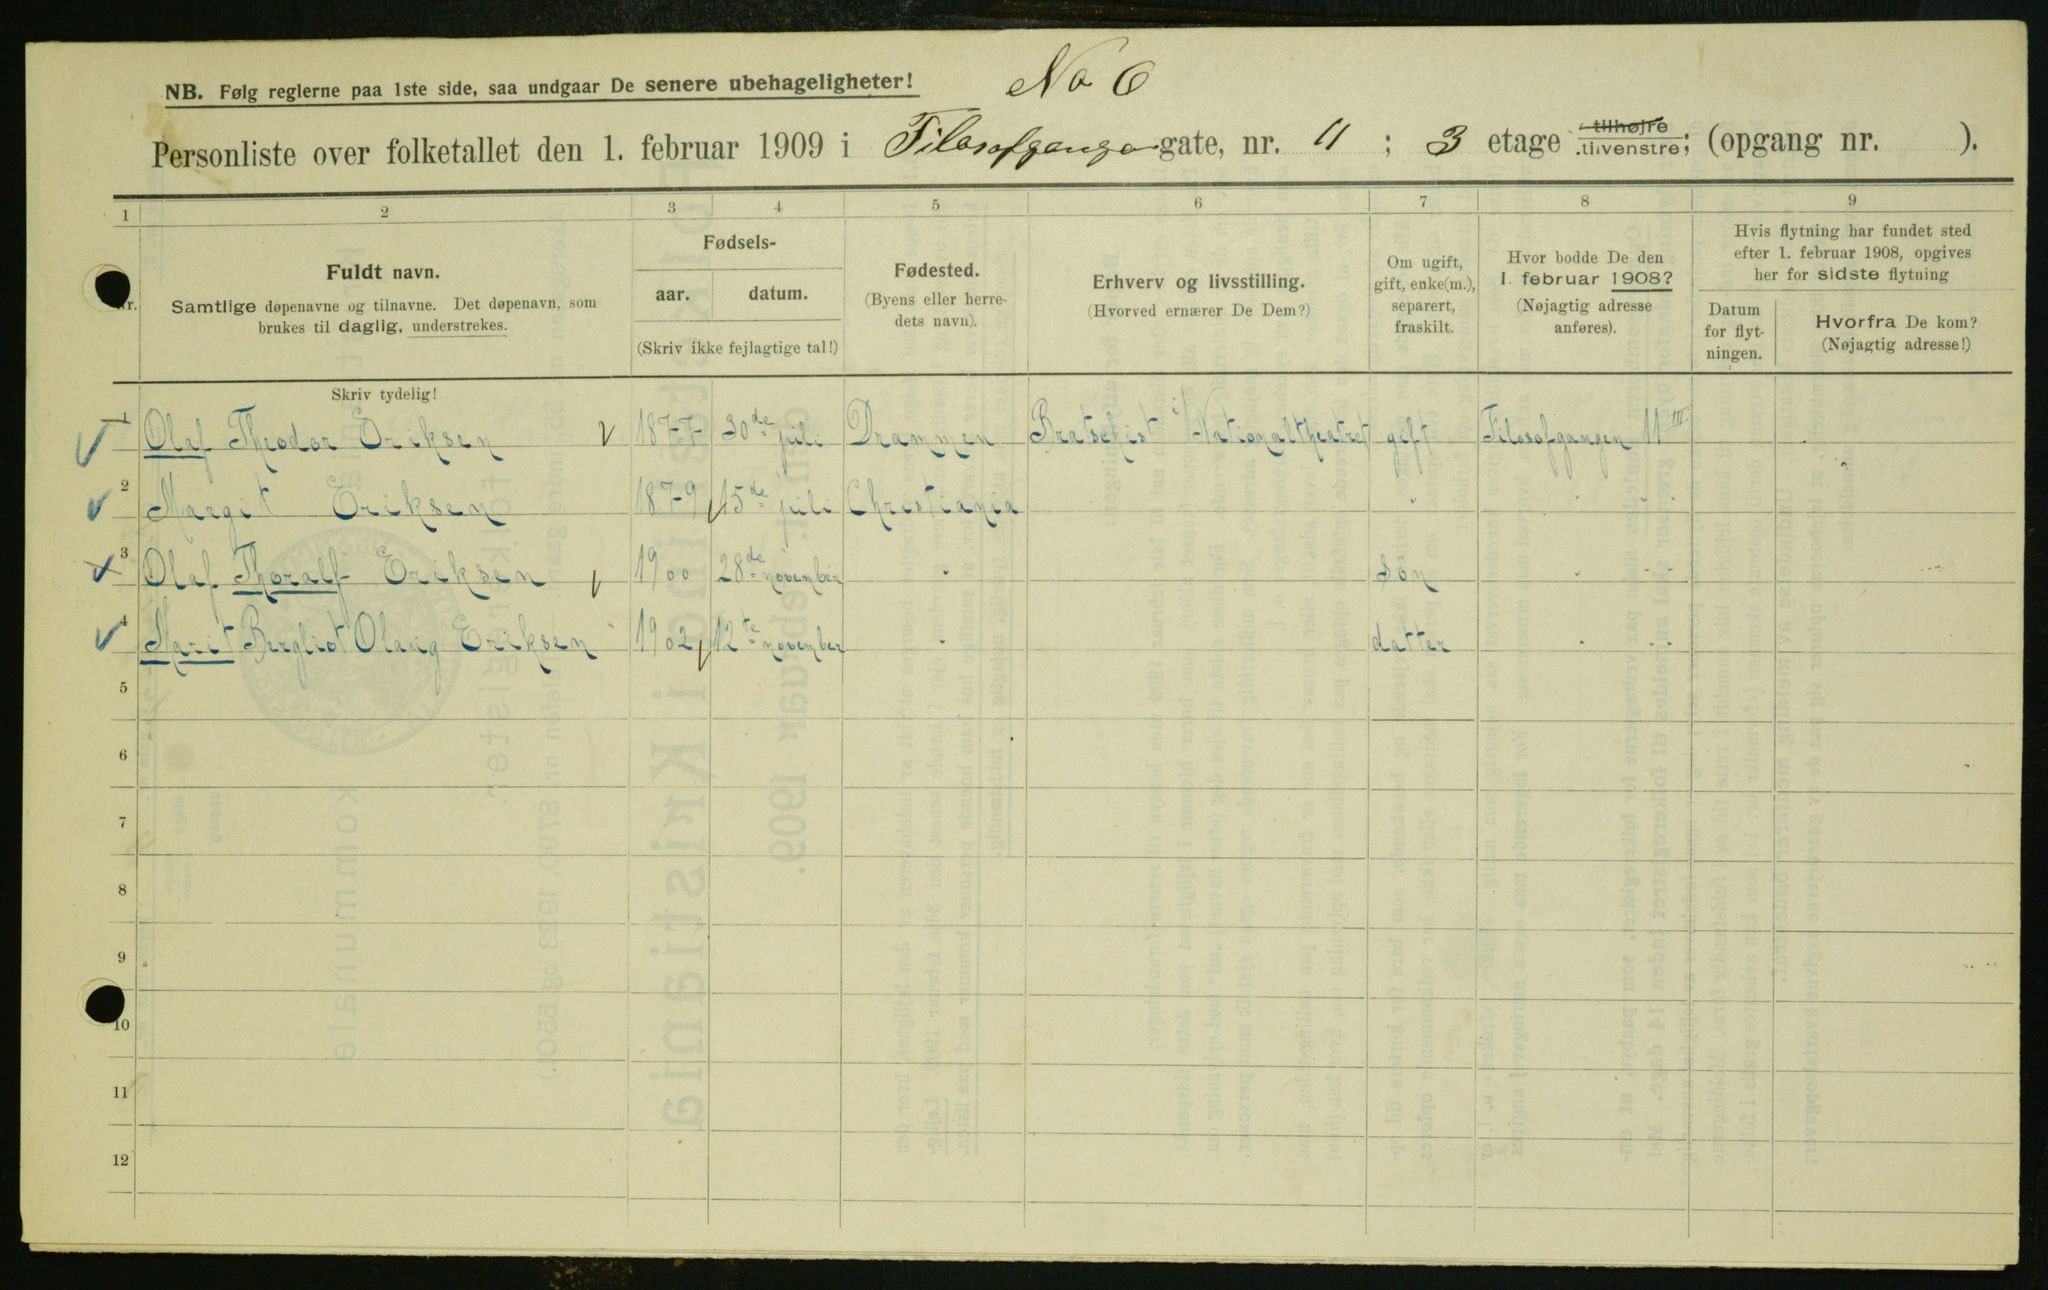 No 6
NB. Følg reglerne paa 1ste side, saa undgaar De senere ubehageligheter!
Personliste over folketallet den 1. februar 1909 i Filosofganga gate, nr. 11; 3 etage tilhøjre tilvenstre; (opgang nr. ).
1 2 3 4 5 6 7 8 9
nr.
Fuldt navn.
Samtlige døpenavne og tilnavne. Det døpenavn, som
brukes til daglig, understrekes.
Skriv tydelig!
Fødsels-
aar. datum.
(Skriv ikke fejlagtige tal!)
Fødested.
(Byens eller herre-
dets navn).
Erhverv og livsstilling.
(Hvorved ernærer De Dem?)
Om ugift,
gift, enke(m.),
separert,
fraskilt.
Hvor bodde De den
1. februar 1908?
(Nøjagtig adresse
anføres).
Hvis flytning har fundet sted
efter 1. februar 1908, opgives
her for sidste flytning
Datum
for flyt-
ningen.
Hvorfra De kom?
(Nøjagtig adresse!)
1 Olaf Theodor Eriksen 1877 30de juli Drammen Bratschist i Nationaltheatret gift Filosofgangen 11 III
2 Margit Eriksen 1879 15de juli Christiania " " " "
3 Olaf Thoralf Eriksen 1900 28de november " søn " " "
4 Marit Bergliot Olaug Eriksen 1902 12te november " datter " " "
5
6
7
8
9
10
11
12